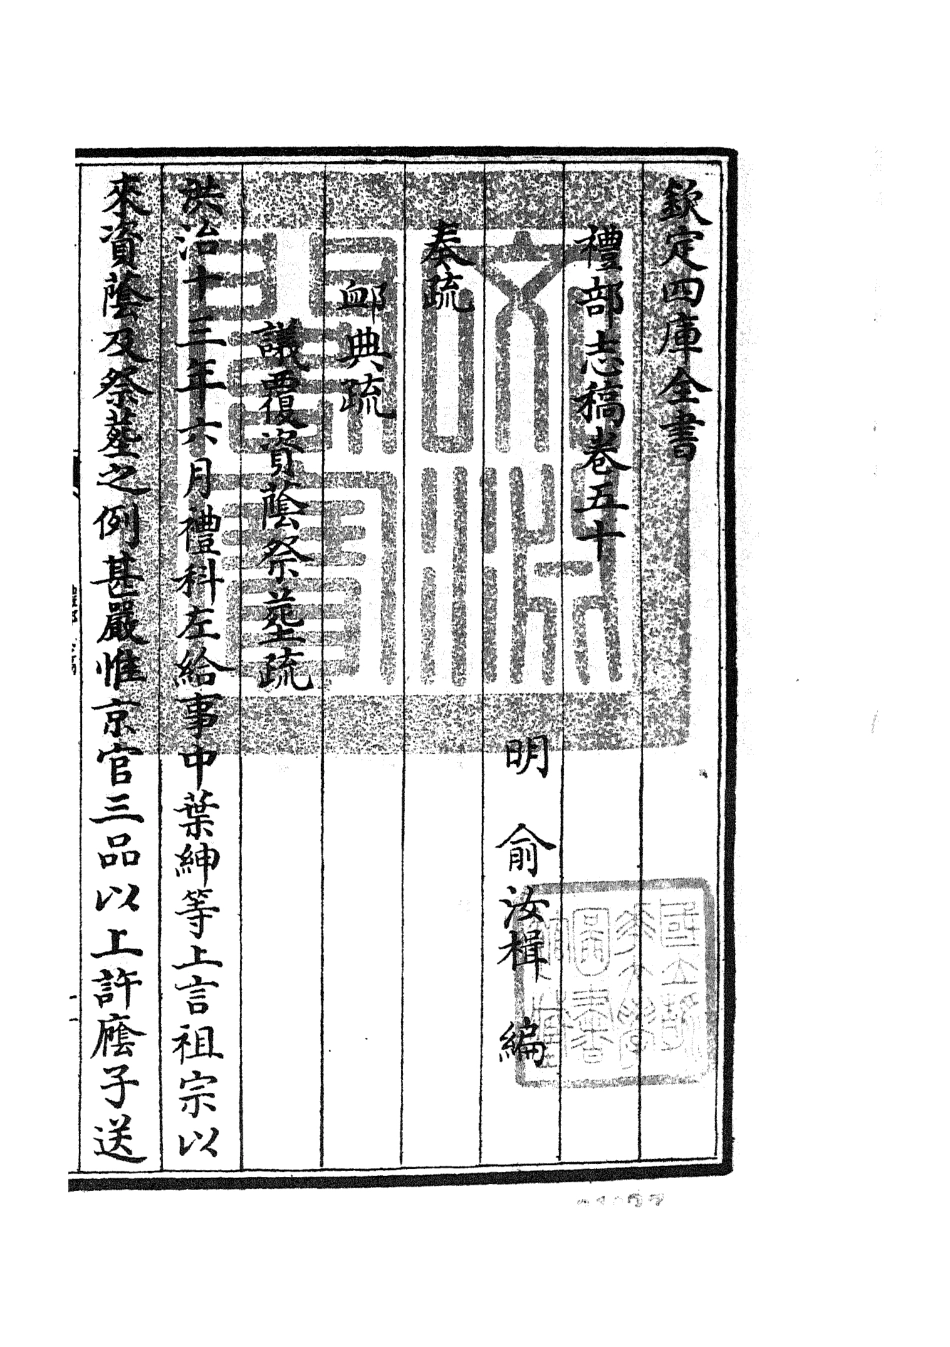 欽定四庫全書
禮部志稿卷五十
明 俞汝楫 編
奏疏
卹典疏
議覆資蔭祭塟疏
洪治十三年六月禮科左給事中葉紳等上言祖宗以
來資蔭及祭塟之例甚嚴惟京官三品以上許廕子送